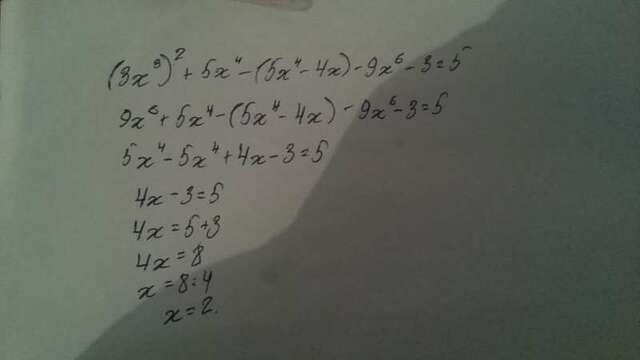 (3x³)² + 5x⁴ - (5x⁴ - 4x) - 9x⁶ - 3 = 5
9x⁶ + 5x⁴ - (5x⁴ - 4x) - 9x⁶ - 3 = 5
5x⁴ - 5x⁴ + 4x - 3 = 5
4x - 3 = 5
4x = 5 + 3
4x = 8
x = 8 : 4
x = 2.